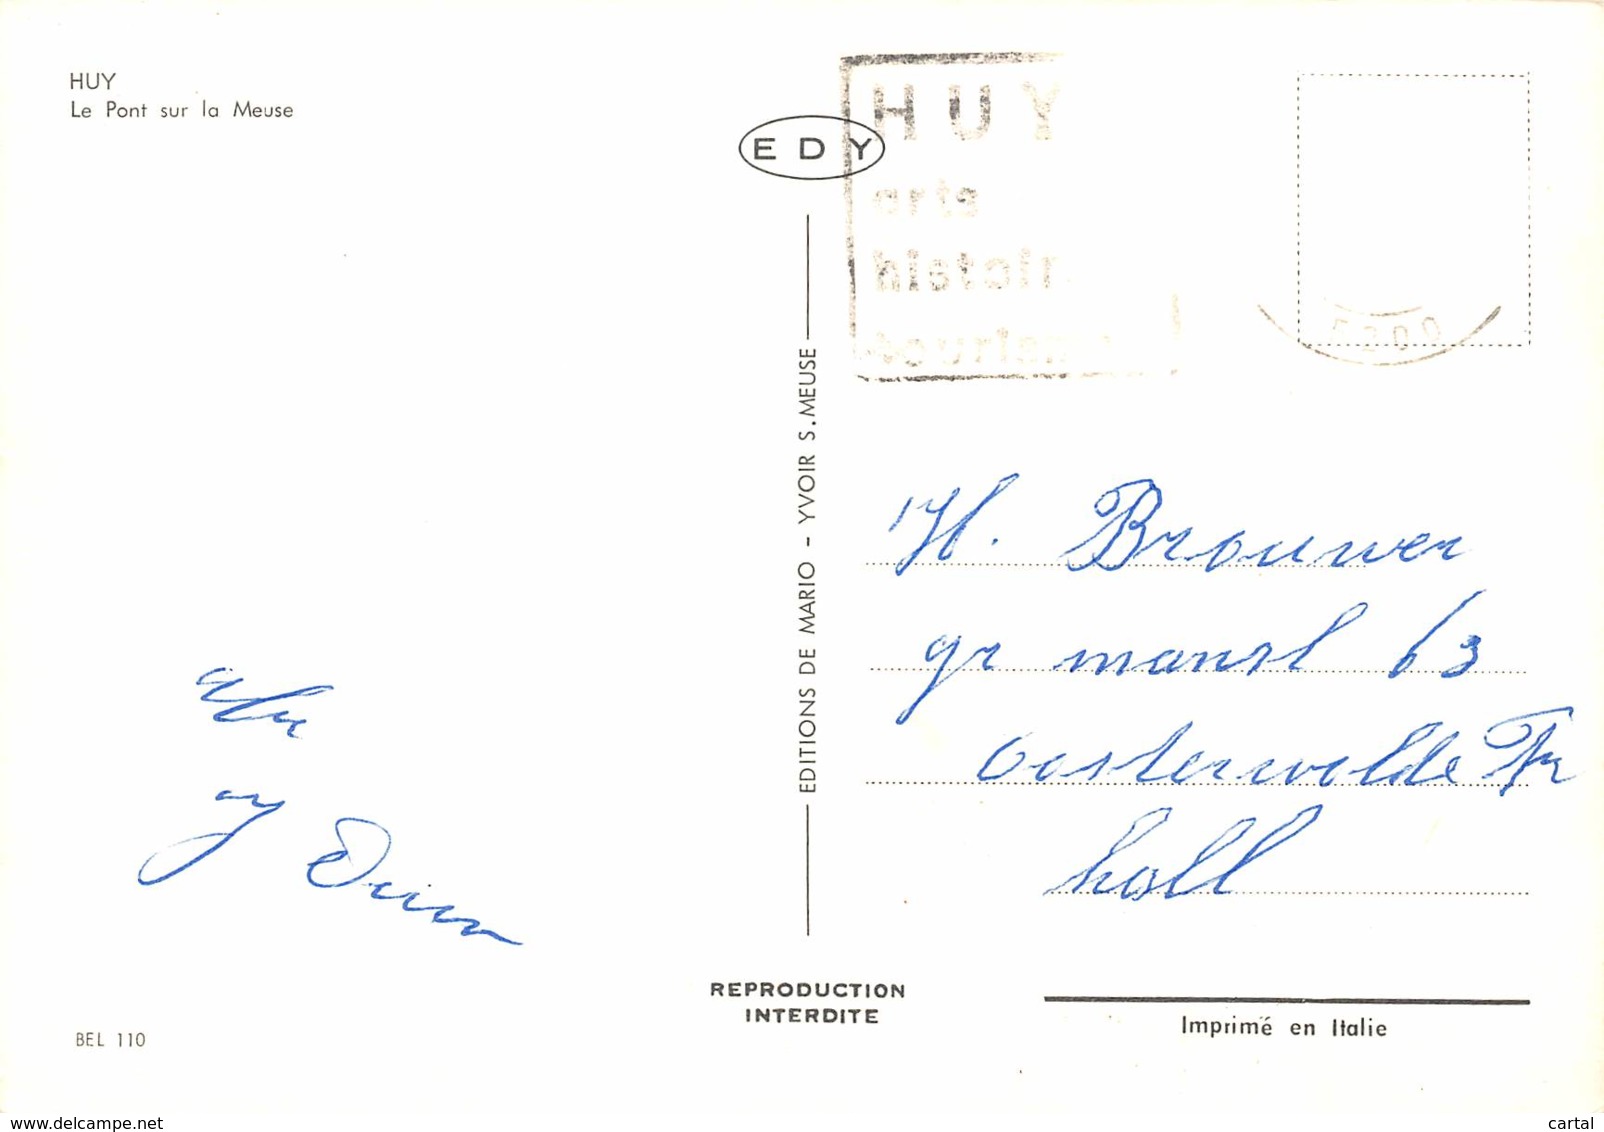 HUY
Le Pont sur la Meuse
EDY
HUY
arts
5200
EDITIONS DE MARIO - YVOIR S. MEUSE
H. Brouwer
gr manst 63
Oosterwolde Fr
holl
REPRODUCTION
INTERDITE
Imprimé en Italie
BEL 110
www.delcampe.net
cartal